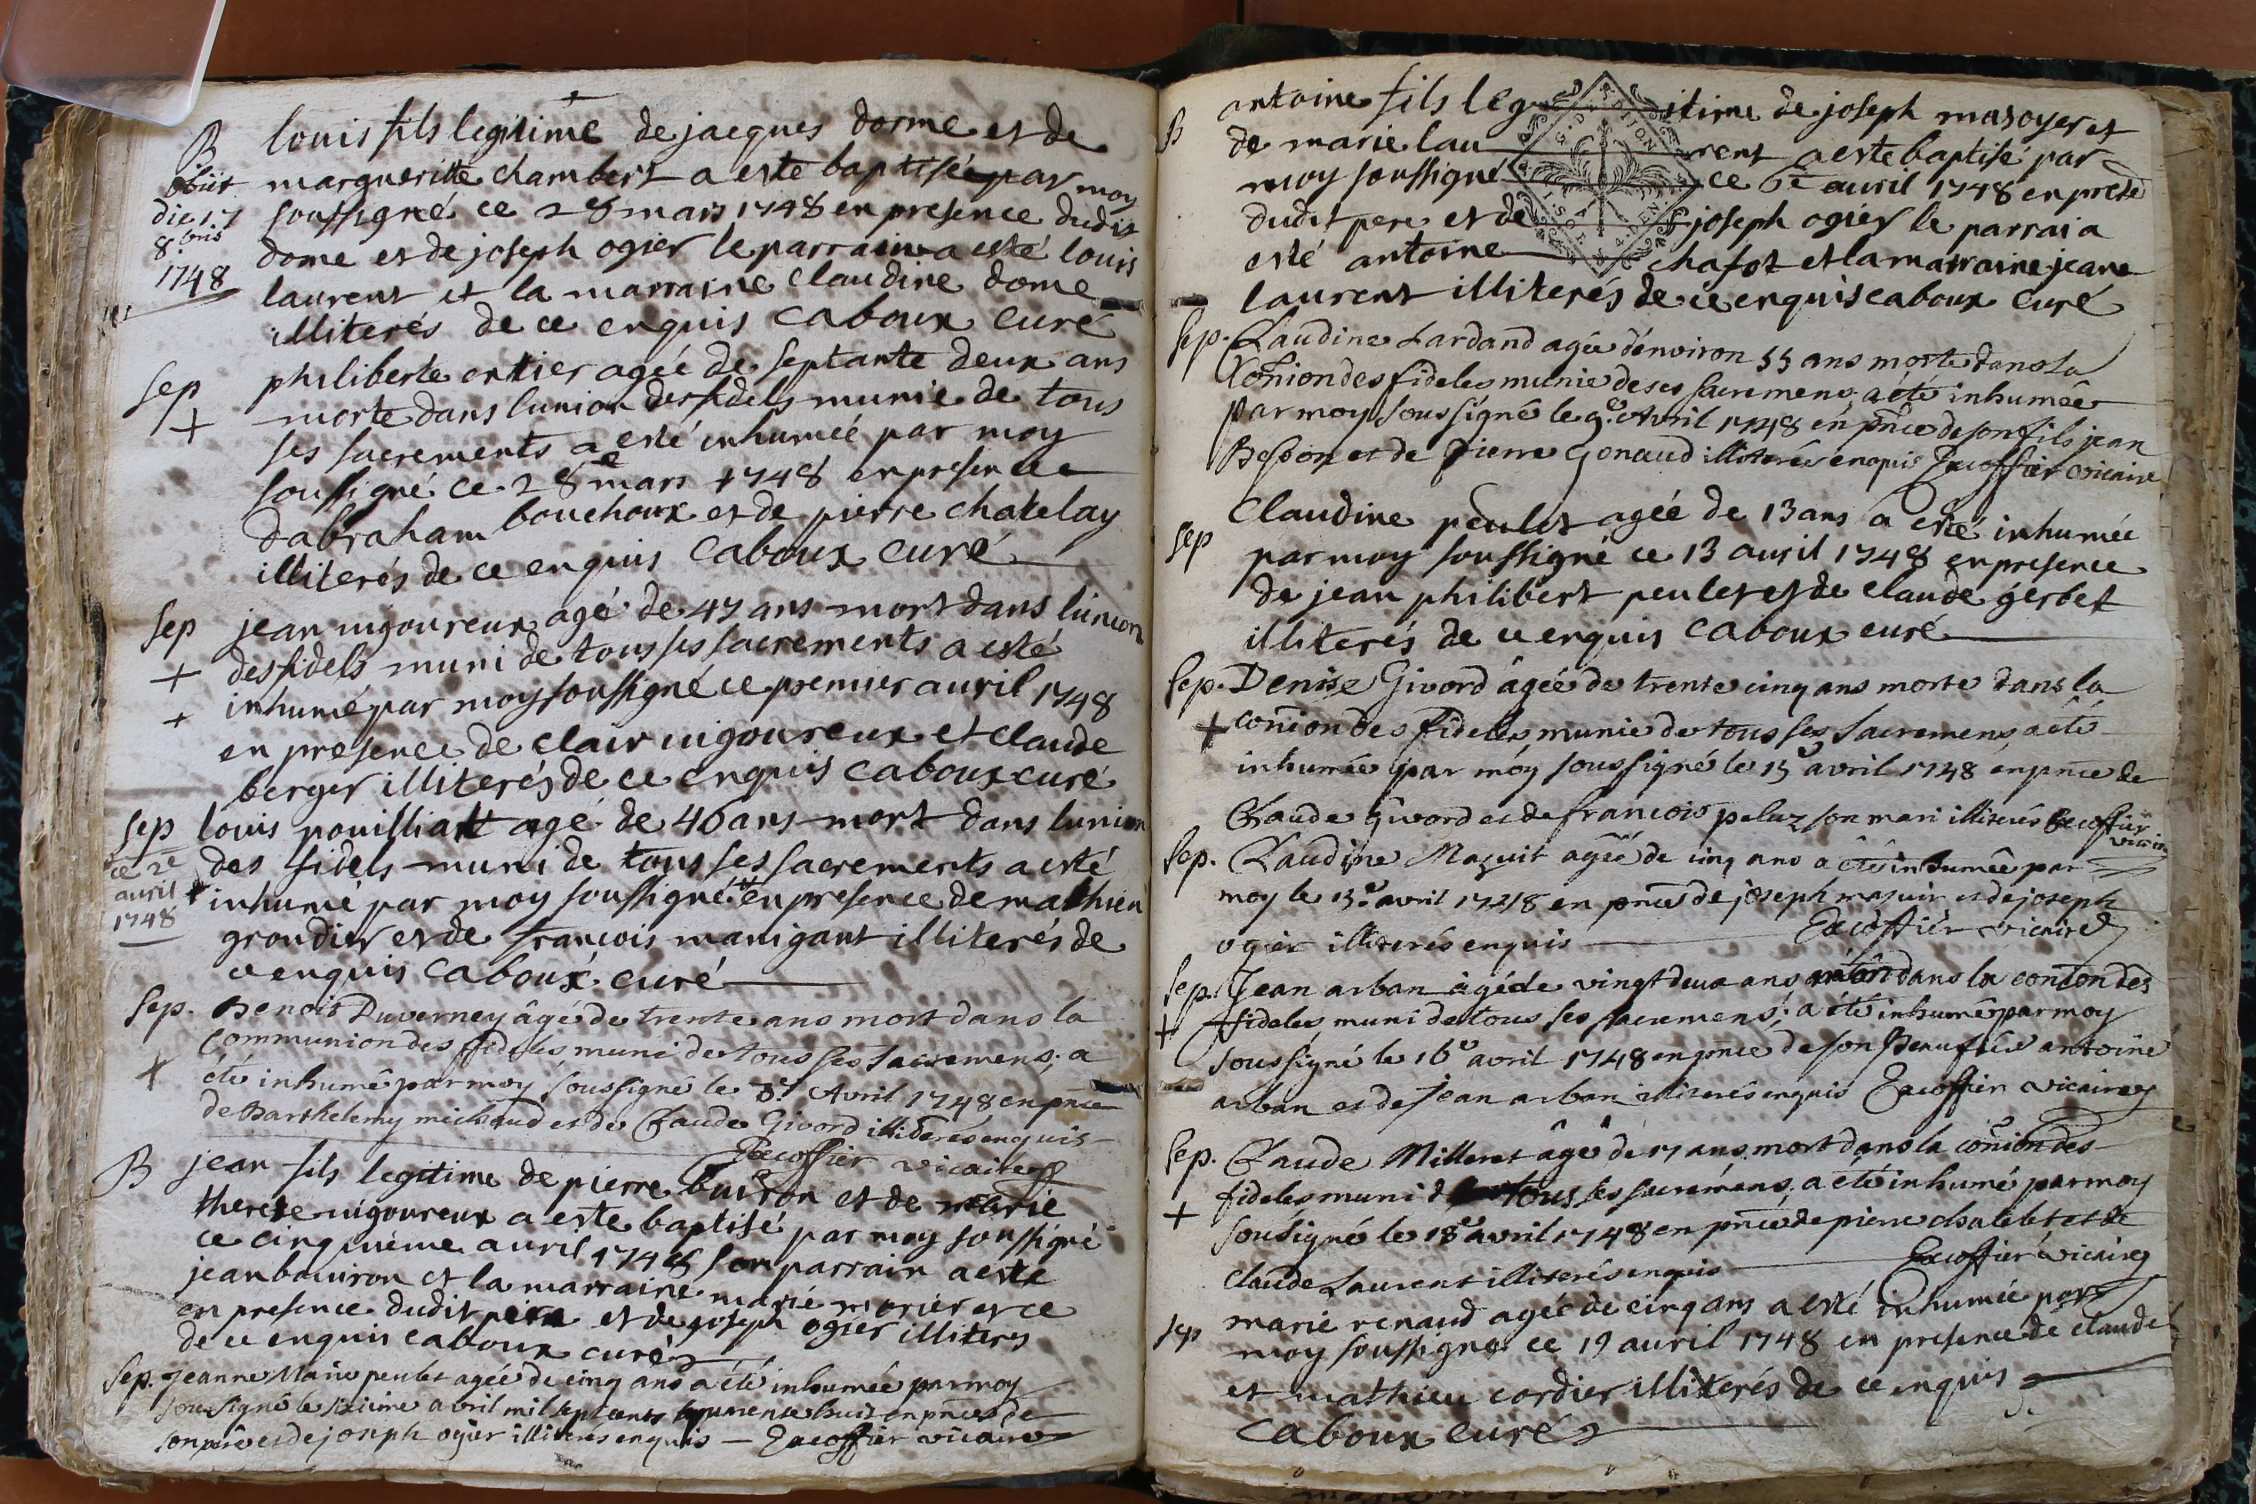 B louis fils legitime de jacques dorme et de
obiit margueritte chambert a este baptisé par moy
die 17 soussigné ce 28 mars 1748 en presence dudit
8.bris dome et de joseph ogier le parrain a esté louis
1748 laurent et la marraine claudine dome
illiterés de ce enquis caboux curé
Sep philiberte ertier ageé de septante deux ans
+ morte dans lunion des fidels munie de tous
ses sacrements a esté inhumeé par moy
soussigné ce 28e mars 1748 en presence
dabraham bouchoux et de pierre chatelay
illiterés de ce enquis caboux curé
Sep jean uigoureux agé de 47 ans mort dans lunion
+ des fidels muni de tous ses sacrements a esté
+ inhumé par moy soussigné ce premier auril 1748
en presence de clair uigoureux et claude
berger illiterés de ce enquis caboux curé
Sep louis pouilliatt agé de 46 ans mort dans lunion
ce 2e des fidels muni de tous ses sacrements a esté
auril + inhumé par moy soussigné en presence de mathieu
1748 grondier et de francois manigant illiterés de
ce enquis caboux curé
Sep. Benoit Duverney âgé de trente ans mort dans la
+ Communion des fideles muni de tous ses sacremens, a
été inhumé par moy soussigné le 3e Avril 1748 en pnce
de Barthelemy michaud et de Claude Givord illiterés enquis
Excoffier vicaire
B jean fils legitime de pierre buiron et de marie
therese uigoureux a este baptisé par moy soussigné
ce cinquieme auril 1748 son parrain a esté
jean bouiron et la marraine marie morier et ce
en presence dudit pere et de joseph ogier illiteres
de ce enquis caboux curé
Sep. jeanne Marie peulet agée de cinq ans a été inhumée par moy
soussigné le sixieme avril mil sept cents quarente huit en pnce de
son pere et de joseph ogier illiterés enquis Excoffier vicaire
B antoine fils legitime de joseph masoyer et
de marie laurent a este baptisé par
moy soussigné ce 6e auril 1748 en prese
dudit pere et de joseph ogier le parrai a
esté antoine chafot et la marraine jeane
laurent illiterés de ce enquis caboux curé
Sep. Claudine Lardand agée d'environ 55 ans morte dans la
Coñion des fideles munie de ses sacremens, a été inhumée
par moy soussigné le 9e Avril 1748 en pnce de son fils jean
Besson et de Pierre Gonaud illiterés enquis Excoffier vicaire
Sep Claudine peulet ageé de 13 ans a esté inhumée
par moy soussigné ce 13 auril 1748 en presence
de jean philibert peulet et de claude gerbet
illiterés de ce enquis caboux curé
Sep. Denise Givord âgée de trente cinq ans morte dans la
+ coñion des fideles, munie de tous ses sacremens, a été
inhumée par moy soussigné le 15e avril 1748 en pnce de
Claude Givord et de francois peluz son mari illiterés Excoffier
vicaire
Sep. Claudine Mazuit agée de cinq ans a été inhumée par
moy le 15e avril 1748 en pnce de joseph mazuir et de joseph
ogier illiterés enquis Excoffier vicaire
Sep. Jean arban agé de vingt deux ans mort dans la coñion des
+ fideles muni de tous ses sacremens, a été inhumé par moy
soussigné le 16e avril 1748 en pnce de son Beaufrere antoine
arban et de Jean arban illiterés enquis Excoffier vicaire
Sep. Claude Milleret âgé de 17 ans mort dans la coñion des
+ fideles muni de tous ses sacremens, a été inhumé par moy
sousigné le 18e avril 1748 en pnce de pierre chatelet et de
claude Laurent illiterés enquis Excoffier vicaire
Sep marie renaud agée de cinq ans a esté inhumée par
moy soussigne ce 19 auril 1748 en presence de claude
et mathieu cordier illiterés de ce enquis
caboux curé